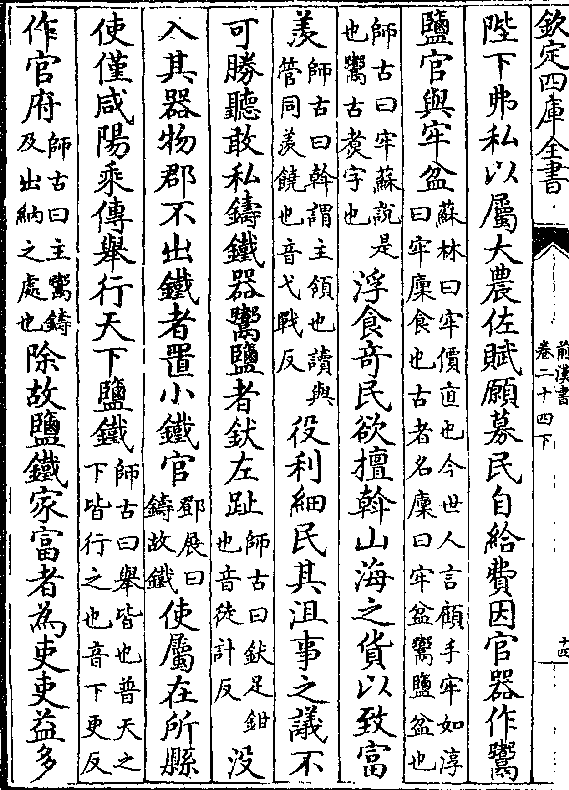 欽定四庫全書
前漢書
卷二十四下
十四
陛下弗私以屬大農佐賦願募民自給費因官器作鬻
鹽官與牢盆蘇林曰牢價直也今世人言顧手牢如淳曰牢廩食也古者名廩曰牢盆鬻鹽盆也
師古曰牢蘇說是也鬻古煑字也浮食竒民欲擅幹山海之貨以致富
羨師古曰幹謂主領也讀與管同羨饒也音弋戰反役利細民其沮事之議不
可勝聽敢私鑄鐵器鬻鹽者釱左趾師古曰釱足鉗也音徒計反沒
入其器物郡不出鐵者置小鐵官鄧展曰鑄故鐵使屬在所縣
使僅咸陽乘傳舉行天下鹽鐵師古曰舉皆也普天之下皆行之也音下更反
作官府師古曰主鬻鑄及出納之處也除故鹽鐵家富者為吏吏益多